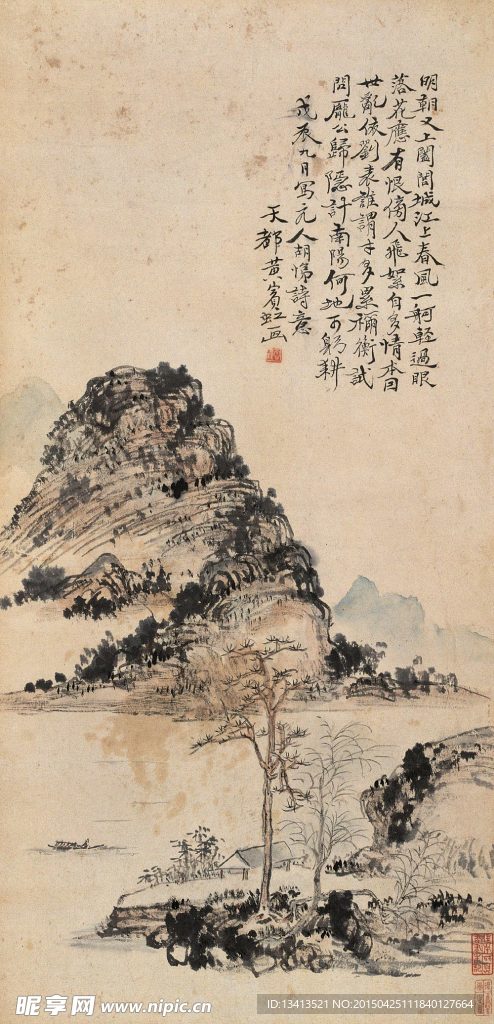 明朝又上闔閭城江上春風一舸輕過眼
落花應有恨傷人飛絮自多情本因
世亂依劉表誰謂才多累禰衡試
問龐公歸隱計南陽何地可躬耕
戊辰九月寫元人胡悌詩意
天都黃賓虹画
昵享网 www.nipic.cn
ID:13413521 NO:20150425111840127664